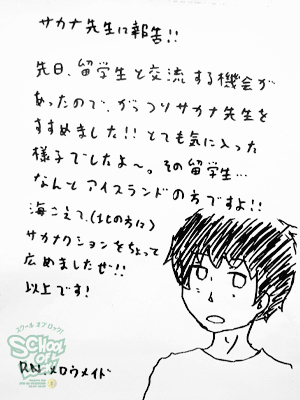 サカナ先生に報告!!
先日、留学生と交流する機会が
あったので、がっつりサカナ先生を
すすめました!!とても気に入った
様子でしたよ〜。その留学生…
なんとアイスランドの方ですよ!!
海こえて、(北の方に)
サカナクションをちょって
広めましたぜ!!
以上です!
スクール オブ ロック!
SCHOOL OF LOCK!
R.N.メロウメイド